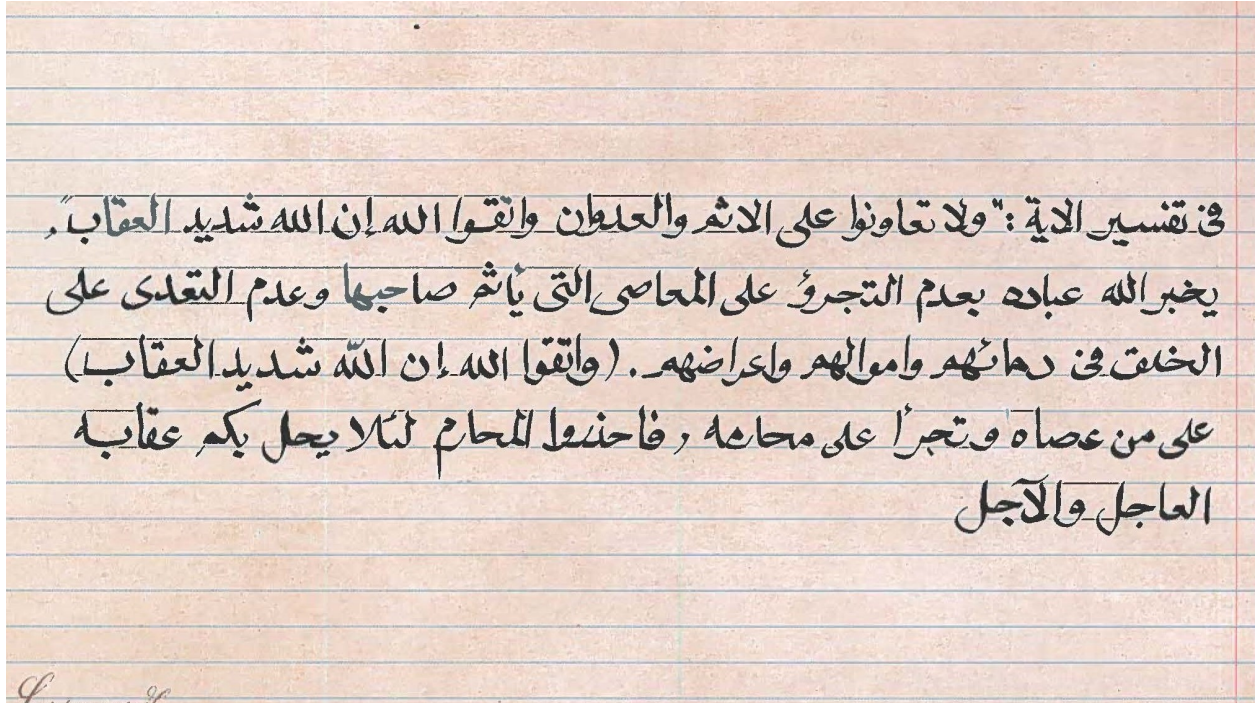 في تفسير الاية : "ولا تعاونوا على الاثم والعدوان واتقوا الله إن الله شديد العقاب",
يخبر الله عباده بعدم التجرؤ على المعاصي التي يأثم صاحبها وعدم التعدى على
الخلق في دمائهم واموالهم واعراضهم . (واتقوا الله إن اللّه شديد العقاب)
على من عصاه وتجرأ على محارمه , فاحذروا المحارم لئلا يحل بكم عقابه
العاجل والآجل